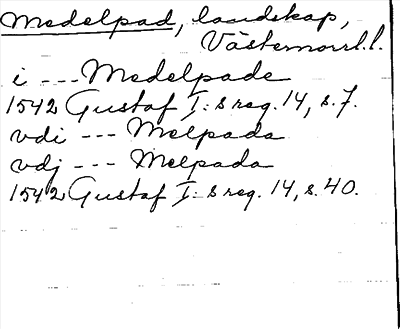 Medelpad, landskap,
Västernorrl.l.
i --- Medelpade
1542 Gustaf I:s reg. 14, s. 7.
vdi --- Melpada
vdj --- Melpada
1542 Gustaf I:s reg. 14, s. 40.